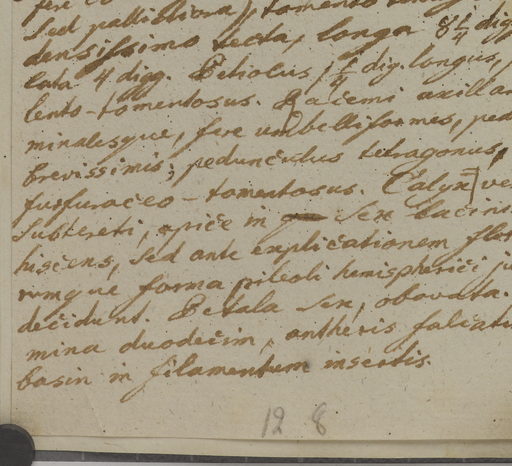 sed pallidiora, tomento
densissimo tecta, longa 8 1/4
lata 4 digg. Petiolus 1/4 dig. longus,
lento-tomentosus. Racemi axillar
minalesque, fere umbelliformes, ped
brevissimis; pedunculus tetragonus,
furfuraceo-tomentosus. Calyx ve
subtereti, apice in sex lacin
hiscens, sed ante explicationem flo
rumque forma pileoli hemispherici ju
decidunt. Petala sex, obovata.
mina duodecim, antheris falcat
basin in filamentum insertis.
12 8